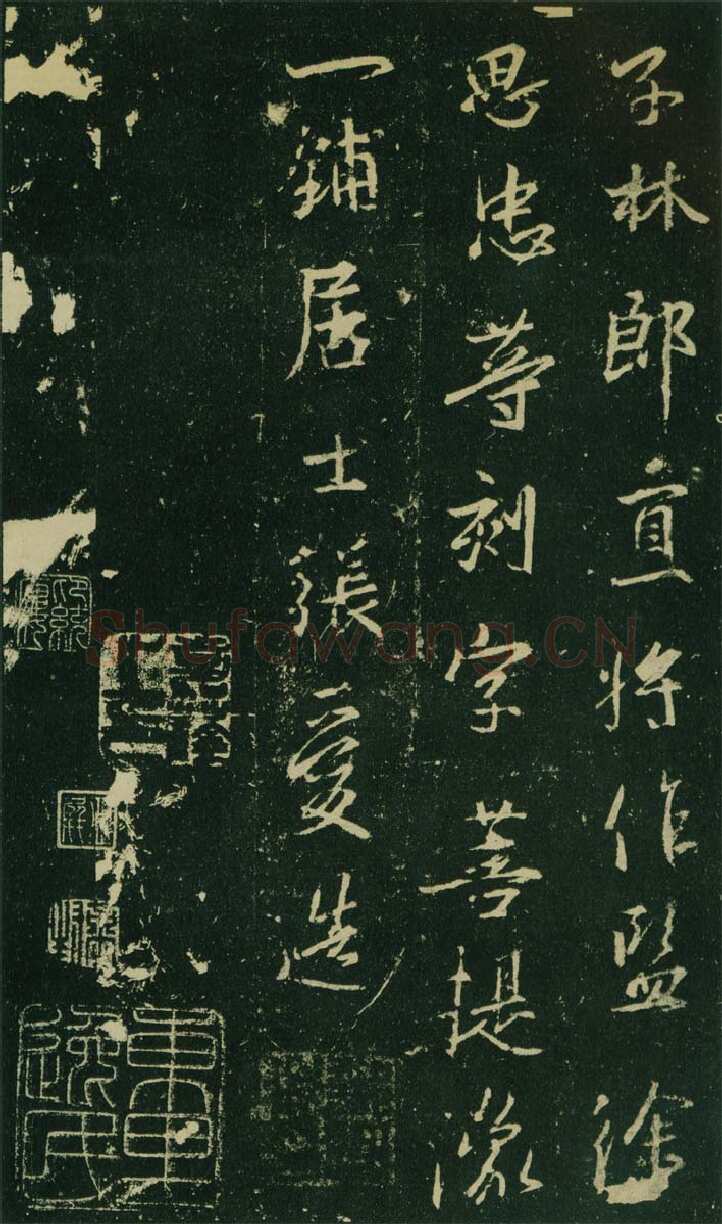 子林郎直將作監徐
思忠等刻字菩提像
一鋪居士張愛造
Shufawang.CN